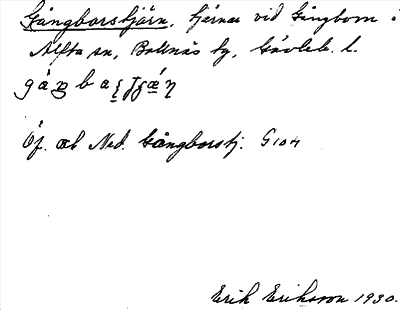 Gångborstjärn, tjärnar vid Gångborn i
Alfta sn, Bollnäs tg, Gävleb. l.
Öf. och Ned. Gångborstj. G104
Erik Eriksson 1930.